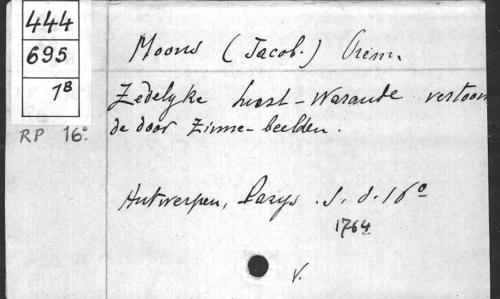 444
695
7B
RP 16°
Moons (Jacob.) Præm.
Zedelyke lust-Warande vertoon
de door Zinne-beelden.
Antwerpen, Parys. S. d. 16°
1764
V.